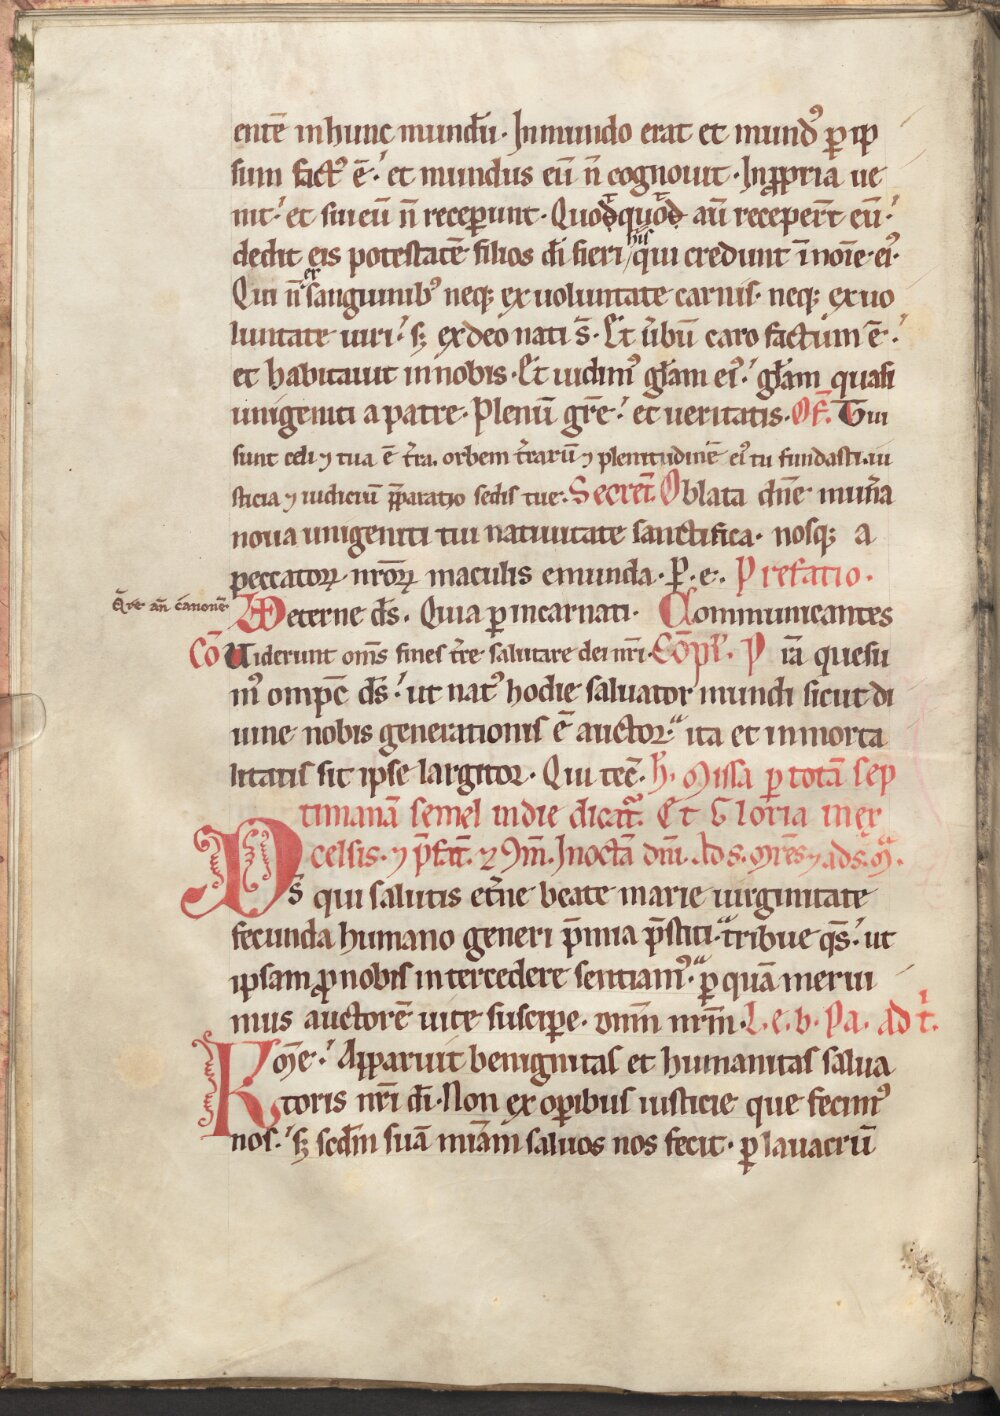 entē in hunc mundū. In mundo erat et mundꝰ ꝑ ip
sum factꝰ ē. et mundus eū n̄ cognouit. In ꝓpria ue
nit. et sui eū n̄ receꝑunt. Quodquod aū receperūt eū.
dedit eis potestatē filios dī fieri his qui credunt ī noīe eiꝰ.
Qui n̄ ex sanguinibꝰ neqꝫ ex uoluntate carnis. neqꝫ ex uo
luntate uiri. sꝫ ex deo nati s̄. Et ūbū caro factum ē.
et habitauit in nobis. Et uidimꝰ glām eiꝰ. glām quasi
unigeniti a patre. Plenū grē. et ueritatis. Of̄. Tui
sunt celi ⁊ tua ē t̄ra. orbem t̄rarū ⁊ plenitudinē eiꝰ tu fundasti. iu
sticia ⁊ iudiciū p̄paratio sedis tue. Secret̄ Oblata dn̄e mun̄a
noua unigeniti tui natiuitate sanctifica. nosqꝫ a
peccatoꝝ nr̄oꝝ maculis emunda. P. e. Prefatio.
Q̄re an̄ canonē
VD eterne ds̄. Quia ꝑ incarnati. Communicantes
Cō Uiderunt om̄s fines t̄re salutare dei nr̄i. Cōpl̄. P īa quesu
mꝰ omp̄c ds̄. ut natꝰ hodie saluator mundi sicut di
uine nobis generationis ē auctor. ita et inmorta
litatis sit ipse largitor. Qui tec̄. h. Missa ꝑ totā sep
timanā semel in die dicat᷑. Et Gloria in ex
celsis. ⁊ p̄fat̄. ⁊ Cōm̄. In octā dn̄i. Ad s. Mr̄es ⁊ ad s. M.
Ds̄ qui salutis et̄ne beate marie uirginitate
fecunda humano generi p̄mia p̄stiti. tribue qs̄. ut
ipsam ꝓ nobis intercedere sentiamꝰ. ꝑ quā merui
mus auctorē uite suscipe. dnm̄ nrm̄. L. e. b. Pa. ad t̄.
Kme. Apparuit benignitas et humanitas salua
toris nr̄i dī. Non ex oꝑibus iusticie que fecimꝰ
nos. sꝫ scdm̄ suā mīam saluos nos fecit. ꝑ lauacrū